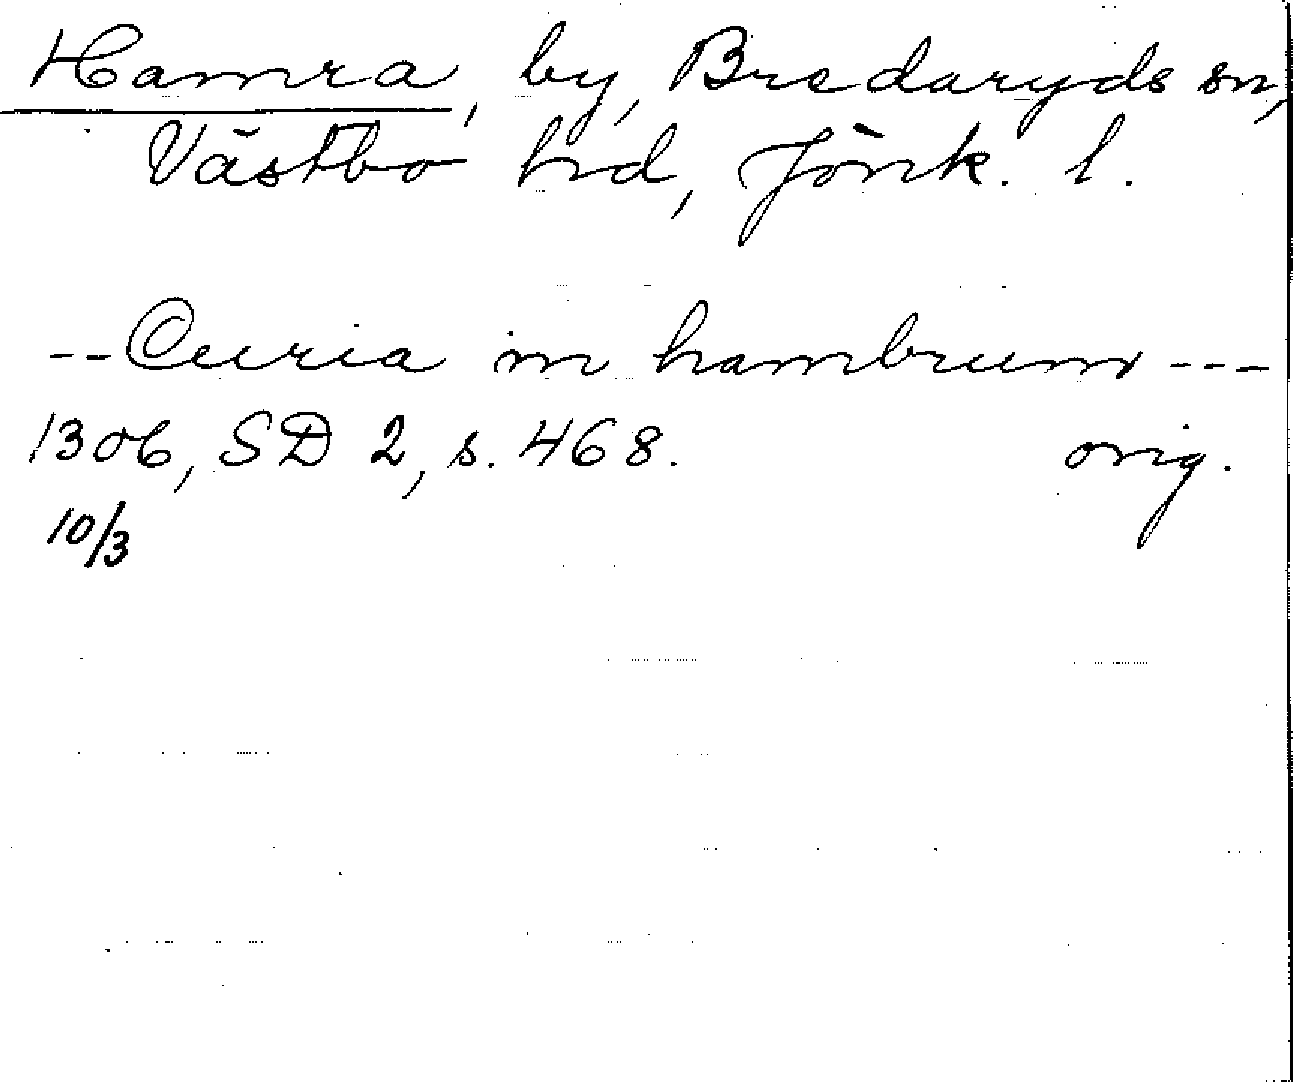 Hamra, by, Bredaryds sn,
Västbo hd, Jönk. l.
-- Curia in hambrum ---
1306, SD 2, s. 468. orig.
10/3